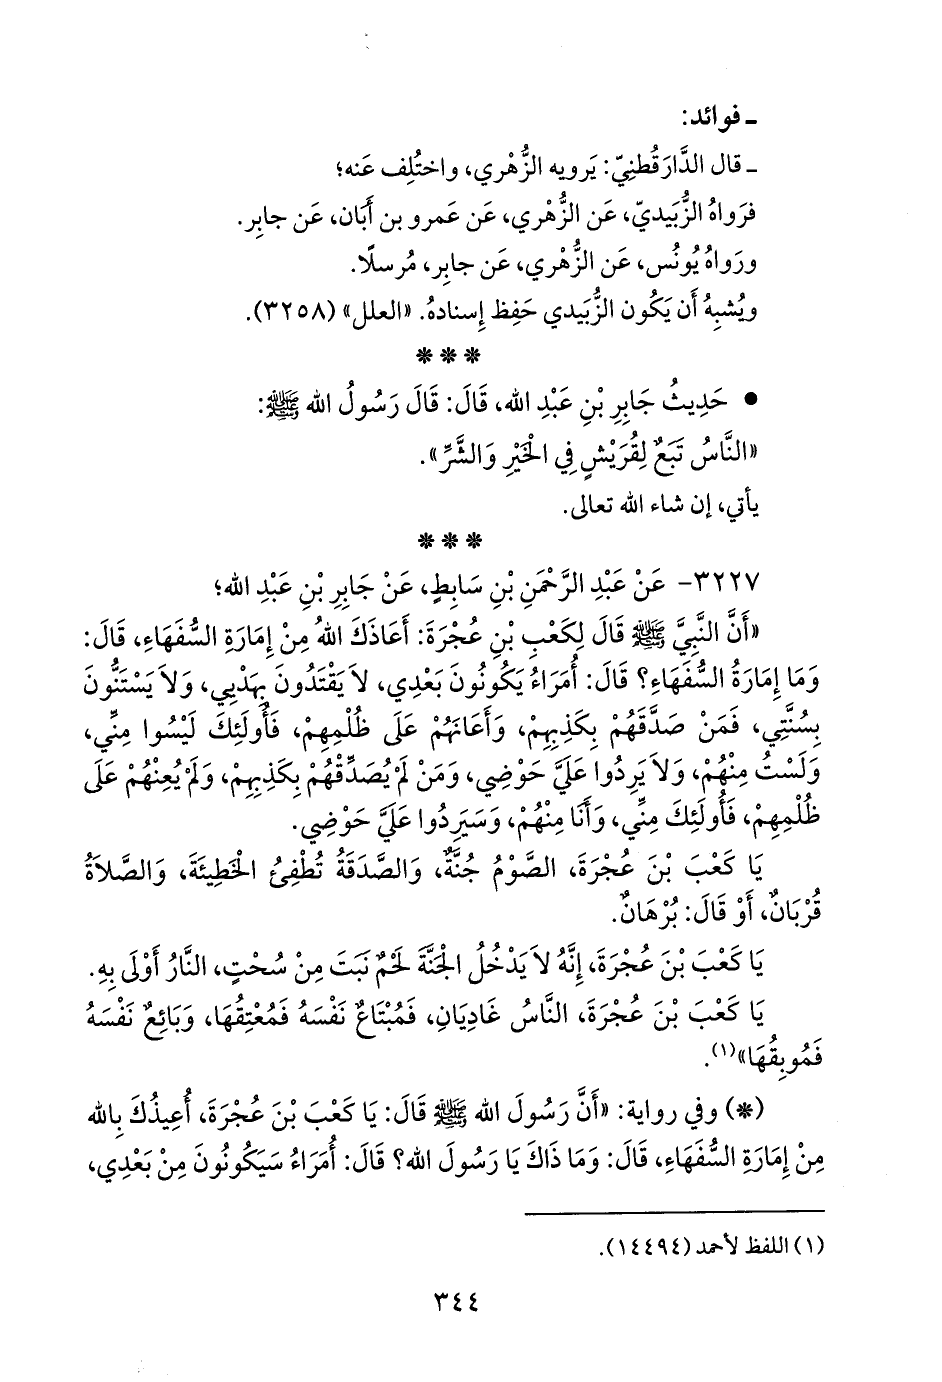 ـ فوائد:
ـ قال الدَّارَقُطنِيّ: يَرويه الزُّهْري، واختُلِف عَنه؛
فرَواهُ الزُّبَيديّ، عَن الزُّهْري، عَن عَمرو بن أَبَان، عَن جابِر.
ورَواهُ يُونُس، عَن الزُّهْري، عَن جابِر، مُرسلًا.
ويُشبِهُ أَن يَكُون الزُّبَيدي حَفِظ إِسنادهُ. «العلل» (٣٢٥٨).
* * *
• حَدِيثُ جَابِرِ بْنِ عَبْدِ الله، قَالَ: قَالَ رَسُولُ الله ﷺ:
«النَّاسُ تَبَعٌ لِقُرَيْشٍ فِي الْخَيْرِ وَالشَّرِّ».
يأتي، إن شاء الله تعالى.
* * *
٣٢٢٧- عَنْ عَبْدِ الرَّحْمَنِ بْنِ سَابِطٍ، عَنْ جَابِرِ بْنِ عَبْدِ الله؛
«أَنَّ النَّبِيَّ ﷺ قَالَ لِكَعْبِ بْنِ عُجْرَةَ: أَعَاذَكَ اللهُ مِنْ إِمَارَةِ السُّفَهَاءِ، قَالَ:
وَمَا إِمَارَةُ السُّفَهَاءِ؟ قَالَ: أُمَرَاءُ يَكُونُونَ بَعْدِي، لاَ يَقْتَدُونَ بِهَدْيِي، وَلاَ يَسْتَنُّونَ
بِسُنَّتِي، فَمَنْ صَدَّقَهُمْ بِكَذِبِهِمْ، وَأَعَانَهُمْ عَلَى ظُلْمِهِمْ، فَأُولَئِكَ لَيْسُوا مِنِّي،
وَلَسْتُ مِنْهُمْ، وَلاَ يَرِدُوا عَلَيَّ حَوْضِي، وَمَنْ لَمْ يُصَدِّقْهُمْ بِكَذِبِهِمْ، وَلَمْ يُعِنْهُمْ عَلَى
ظُلْمِهِمْ، فَأُولَئِكَ مِنِّي، وَأَنَا مِنْهُمْ، وَسَيَرِدُوا عَلَيَّ حَوْضِي.
يَا كَعْبَ بْنَ عُجْرَةَ، الصَّوْمُ جُنَّةٌ، وَالصَّدَقَةُ تُطْفِئُ الْخَطِيئَةَ، وَالصَّلاَةُ
قُرْبَانٌ، أَوْ قَالَ: بُرْهَانٌ.
يَا كَعْبَ بْنَ عُجْرَةَ، إِنَّهُ لاَ يَدْخُلُ الْجَنَّةَ لَحْمٌ نَبَتَ مِنْ سُحْتٍ، النَّارُ أَوْلَى بِهِ.
يَا كَعْبَ بْنَ عُجْرَةَ، النَّاسُ غَادِيَانِ، فَمُبْتَاعٌ نَفْسَهُ فَمُعْتِقُهَا، وَبَائِعٌ نَفْسَهُ
فَمُوبِقُهَا»(١).
(*) وفي رواية: «أَنَّ رَسُولَ الله ﷺ قَالَ: يَا كَعْبَ بْنَ عُجْرَةَ، أُعِيذُكَ بِالله
مِنْ إِمَارَةِ السُّفَهَاءِ، قَالَ: وَمَا ذَاكَ يَا رَسُولَ الله؟ قَالَ: أُمَرَاءُ سَيَكُونُونَ مِنْ بَعْدِي،
(١) اللفظ لأحمد (١٤٤٩٤).
٣٤٤